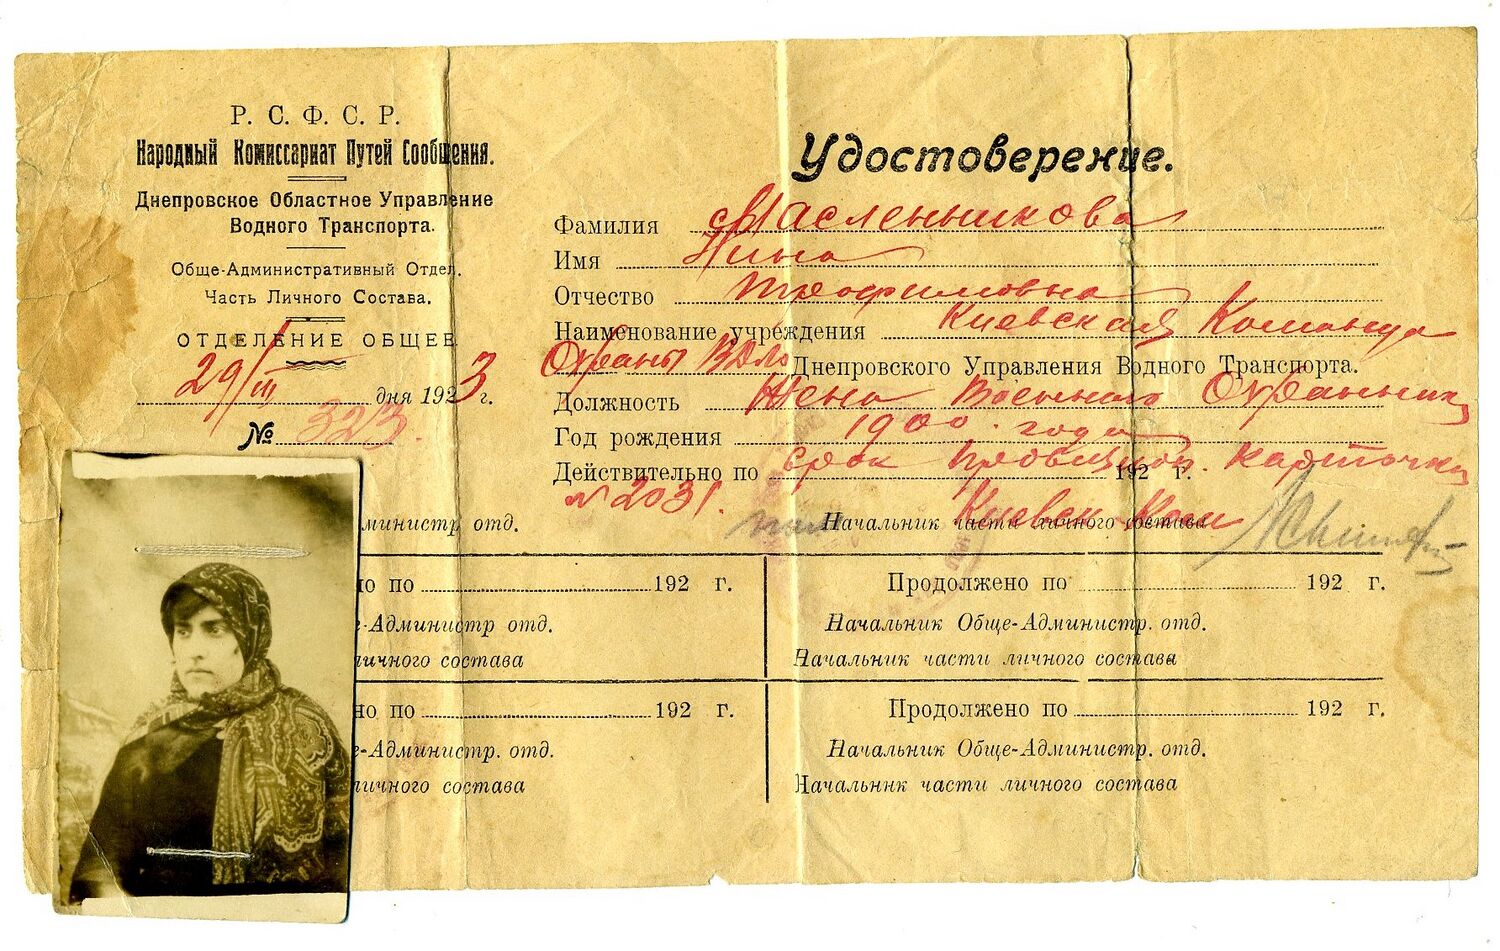 Р. С. Ф. С. Р.
Народный Комиссариат Путей Сообщения.
Днепровское Областное Управление
Водного Транспорта.
Обще-Административный Отдел.
Часть Личного Состава.
ОТДЕЛЕНИЕ ОБЩЕЕ
29/III дня 1923 г.
№ 323.
Удостоверение.
Фамилия Масленникова
Имя Нина
Отчество Трофимовна
Наименование учреждения Киевская Команда
Охраны Днепровского Управления Водного Транспорта.
Должность Жена Военного Охранника
Год рождения 1900 года
Действительно по срок Провизион. карточки 192 г.
№ 2031.
министр отд.
Начальник части личного состава
Киевск.
но по 192 г.
е-Администр отд.
личного состава
Продолжено по 192 г.
Начальник Обще-Администр. отд.
Начальник части личного состава
но по 192 г.
е-Администр. отд.
личного состава
Продолжено по 192 г.
Начальник Обще-Администр. отд.
Начальник части личного состава